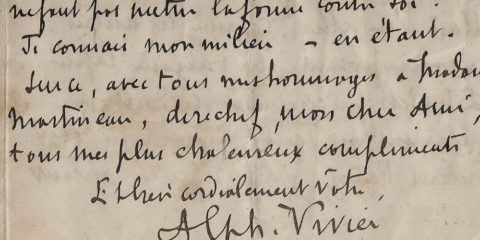 pas mettre la forme contre soi.
Je connais mon milieu – en étant.
Sur ce, avec tous mes hommages à Madam
Martineau, derechef, mon cher Ami,
tous mes plus chaleureux compliments
Et bien cordialement votre,
Alph. Vivier